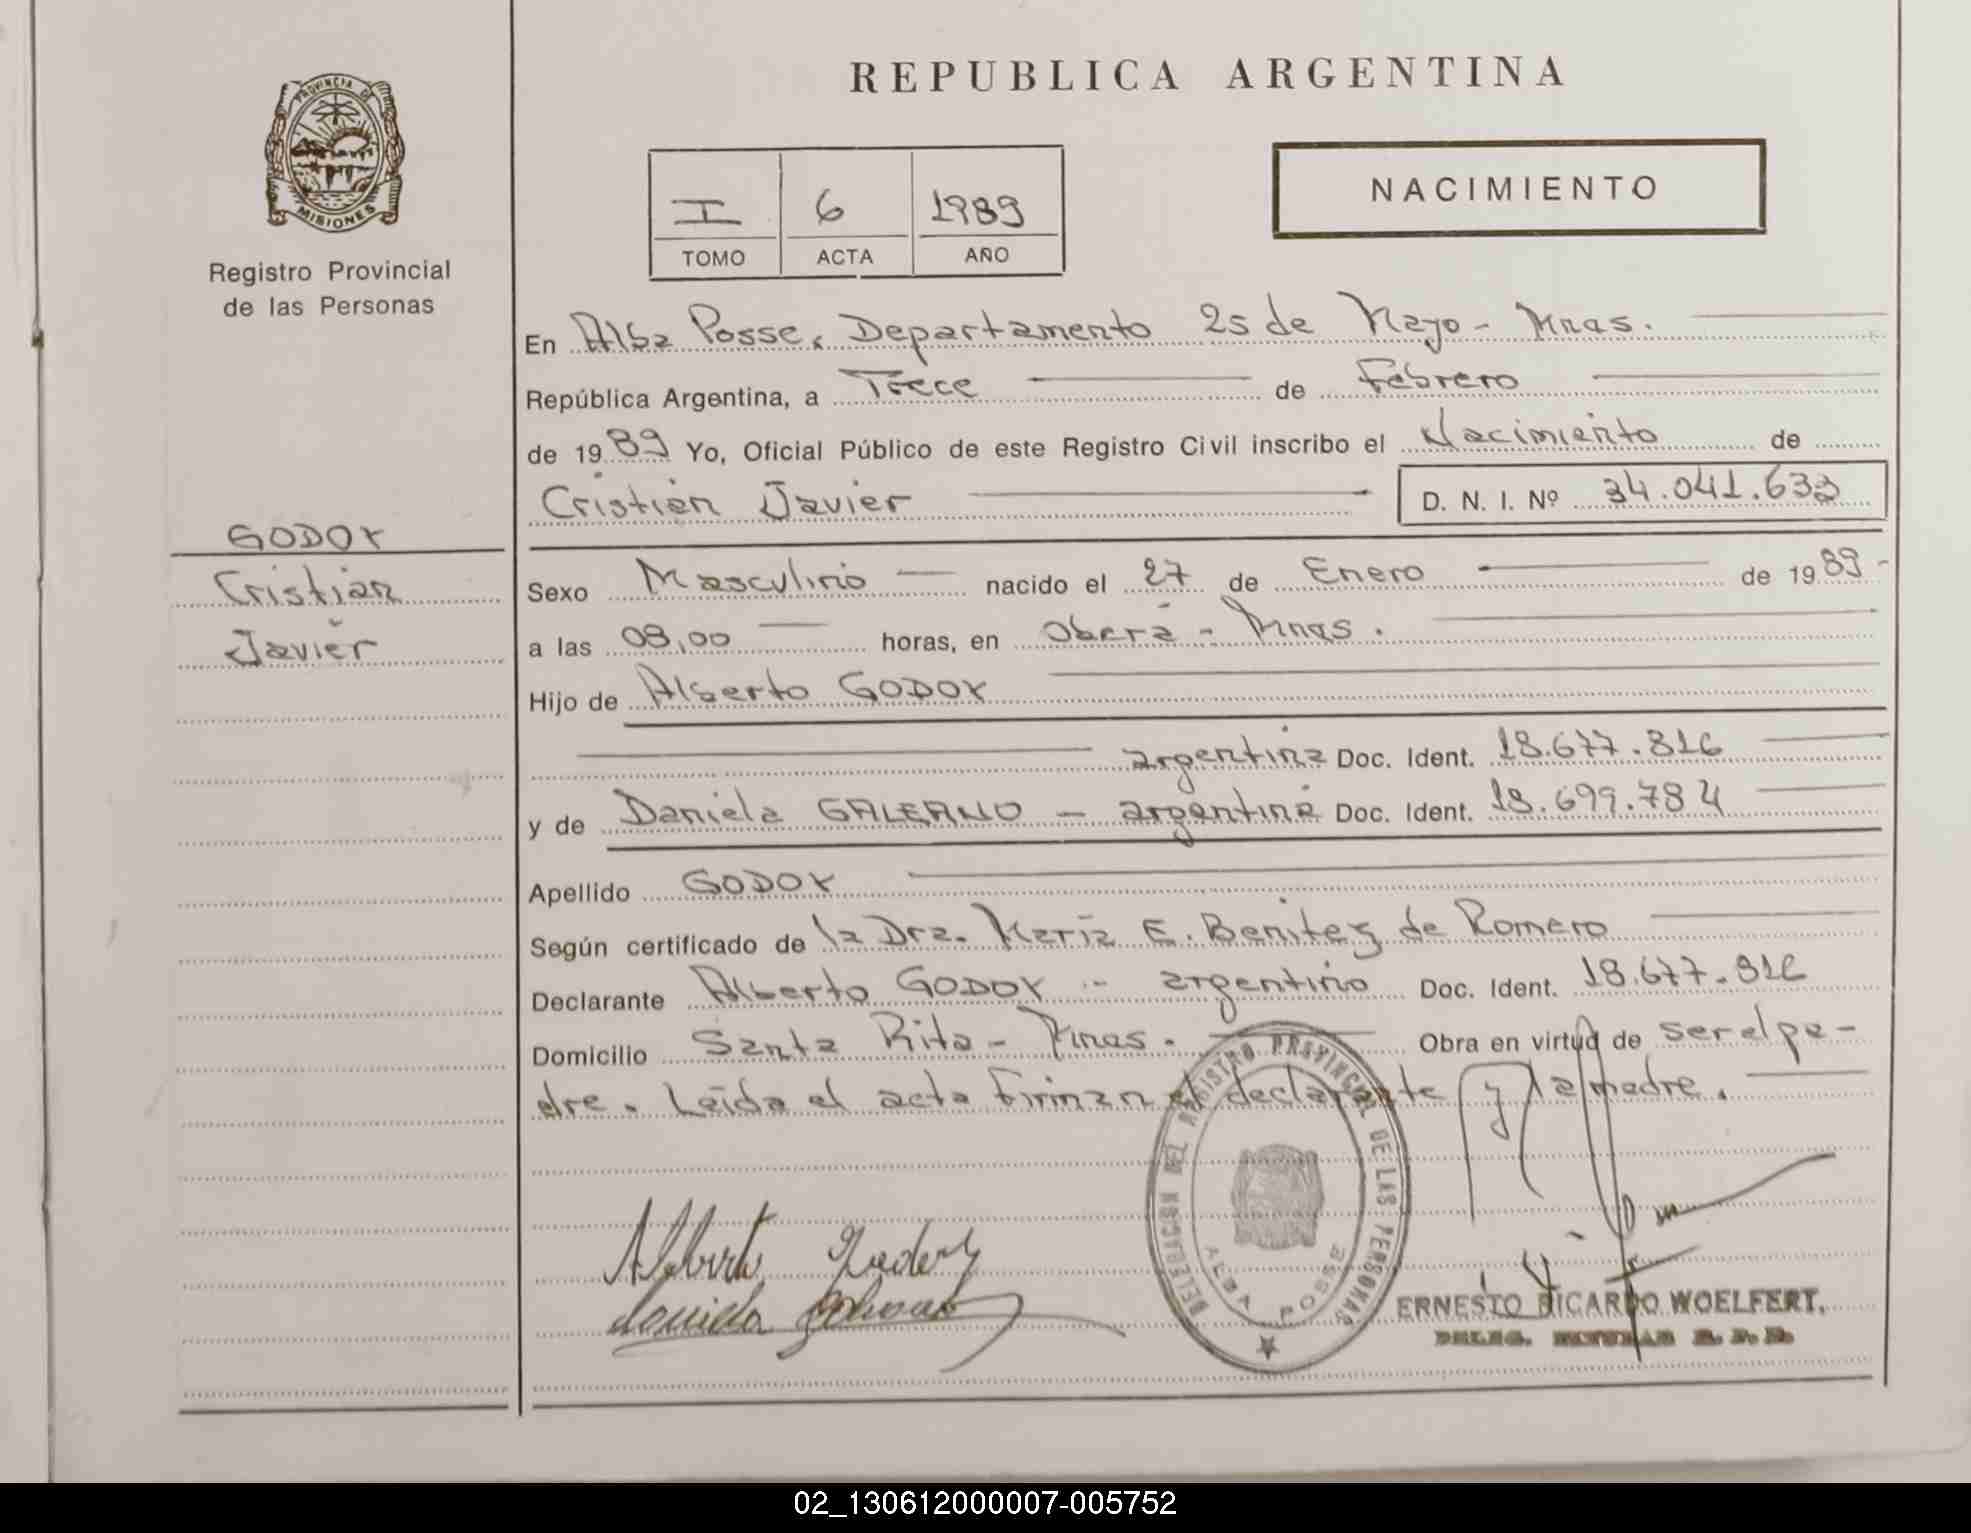 REPUBLICA ARGENTINA
PROVINCIA DE
MISIONES
Registro Provincial
de las Personas
I 6 1989
TOMO ACTA AÑO
NACIMIENTO
En Alba Posse, Departamento 25 de Mayo - Mnas.
República Argentina, a Trece de Febrero
de 1989 Yo, Oficial Público de este Registro Civil inscribo el Nacimiento de
Cristian Javier D. N. I. Nº 34.041.633
GODOY
Cristian
Javier
Sexo Masculino nacido el 27 de Enero de 1989-
a las 08,00 horas, en Oberá - Mnas.
Hijo de Alberto GODOY
argentina Doc. Ident. 18.677.816
y de Daniela GALEANO - argentina Doc. Ident. 18.699.784
Apellido GODOY
Según certificado de la Dra. María E. Benitez de Romero
Declarante Alberto GODOY - argentino Doc. Ident. 18.677.816
Domicilio Santa Rita - Mnas. Obra en virtud de ser el pa-
dre. Leída el acta firman el declarante y la madre.
DELEGACION DEL REGISTRO PROVINCIAL DE LAS PERSONAS
ALBA POSSE
Alberto Godoy
Daniela Galeano
ERNESTO RICARDO WOELFERT.
DELEG. TITULAR R. P. P.
02_130612000007-005752